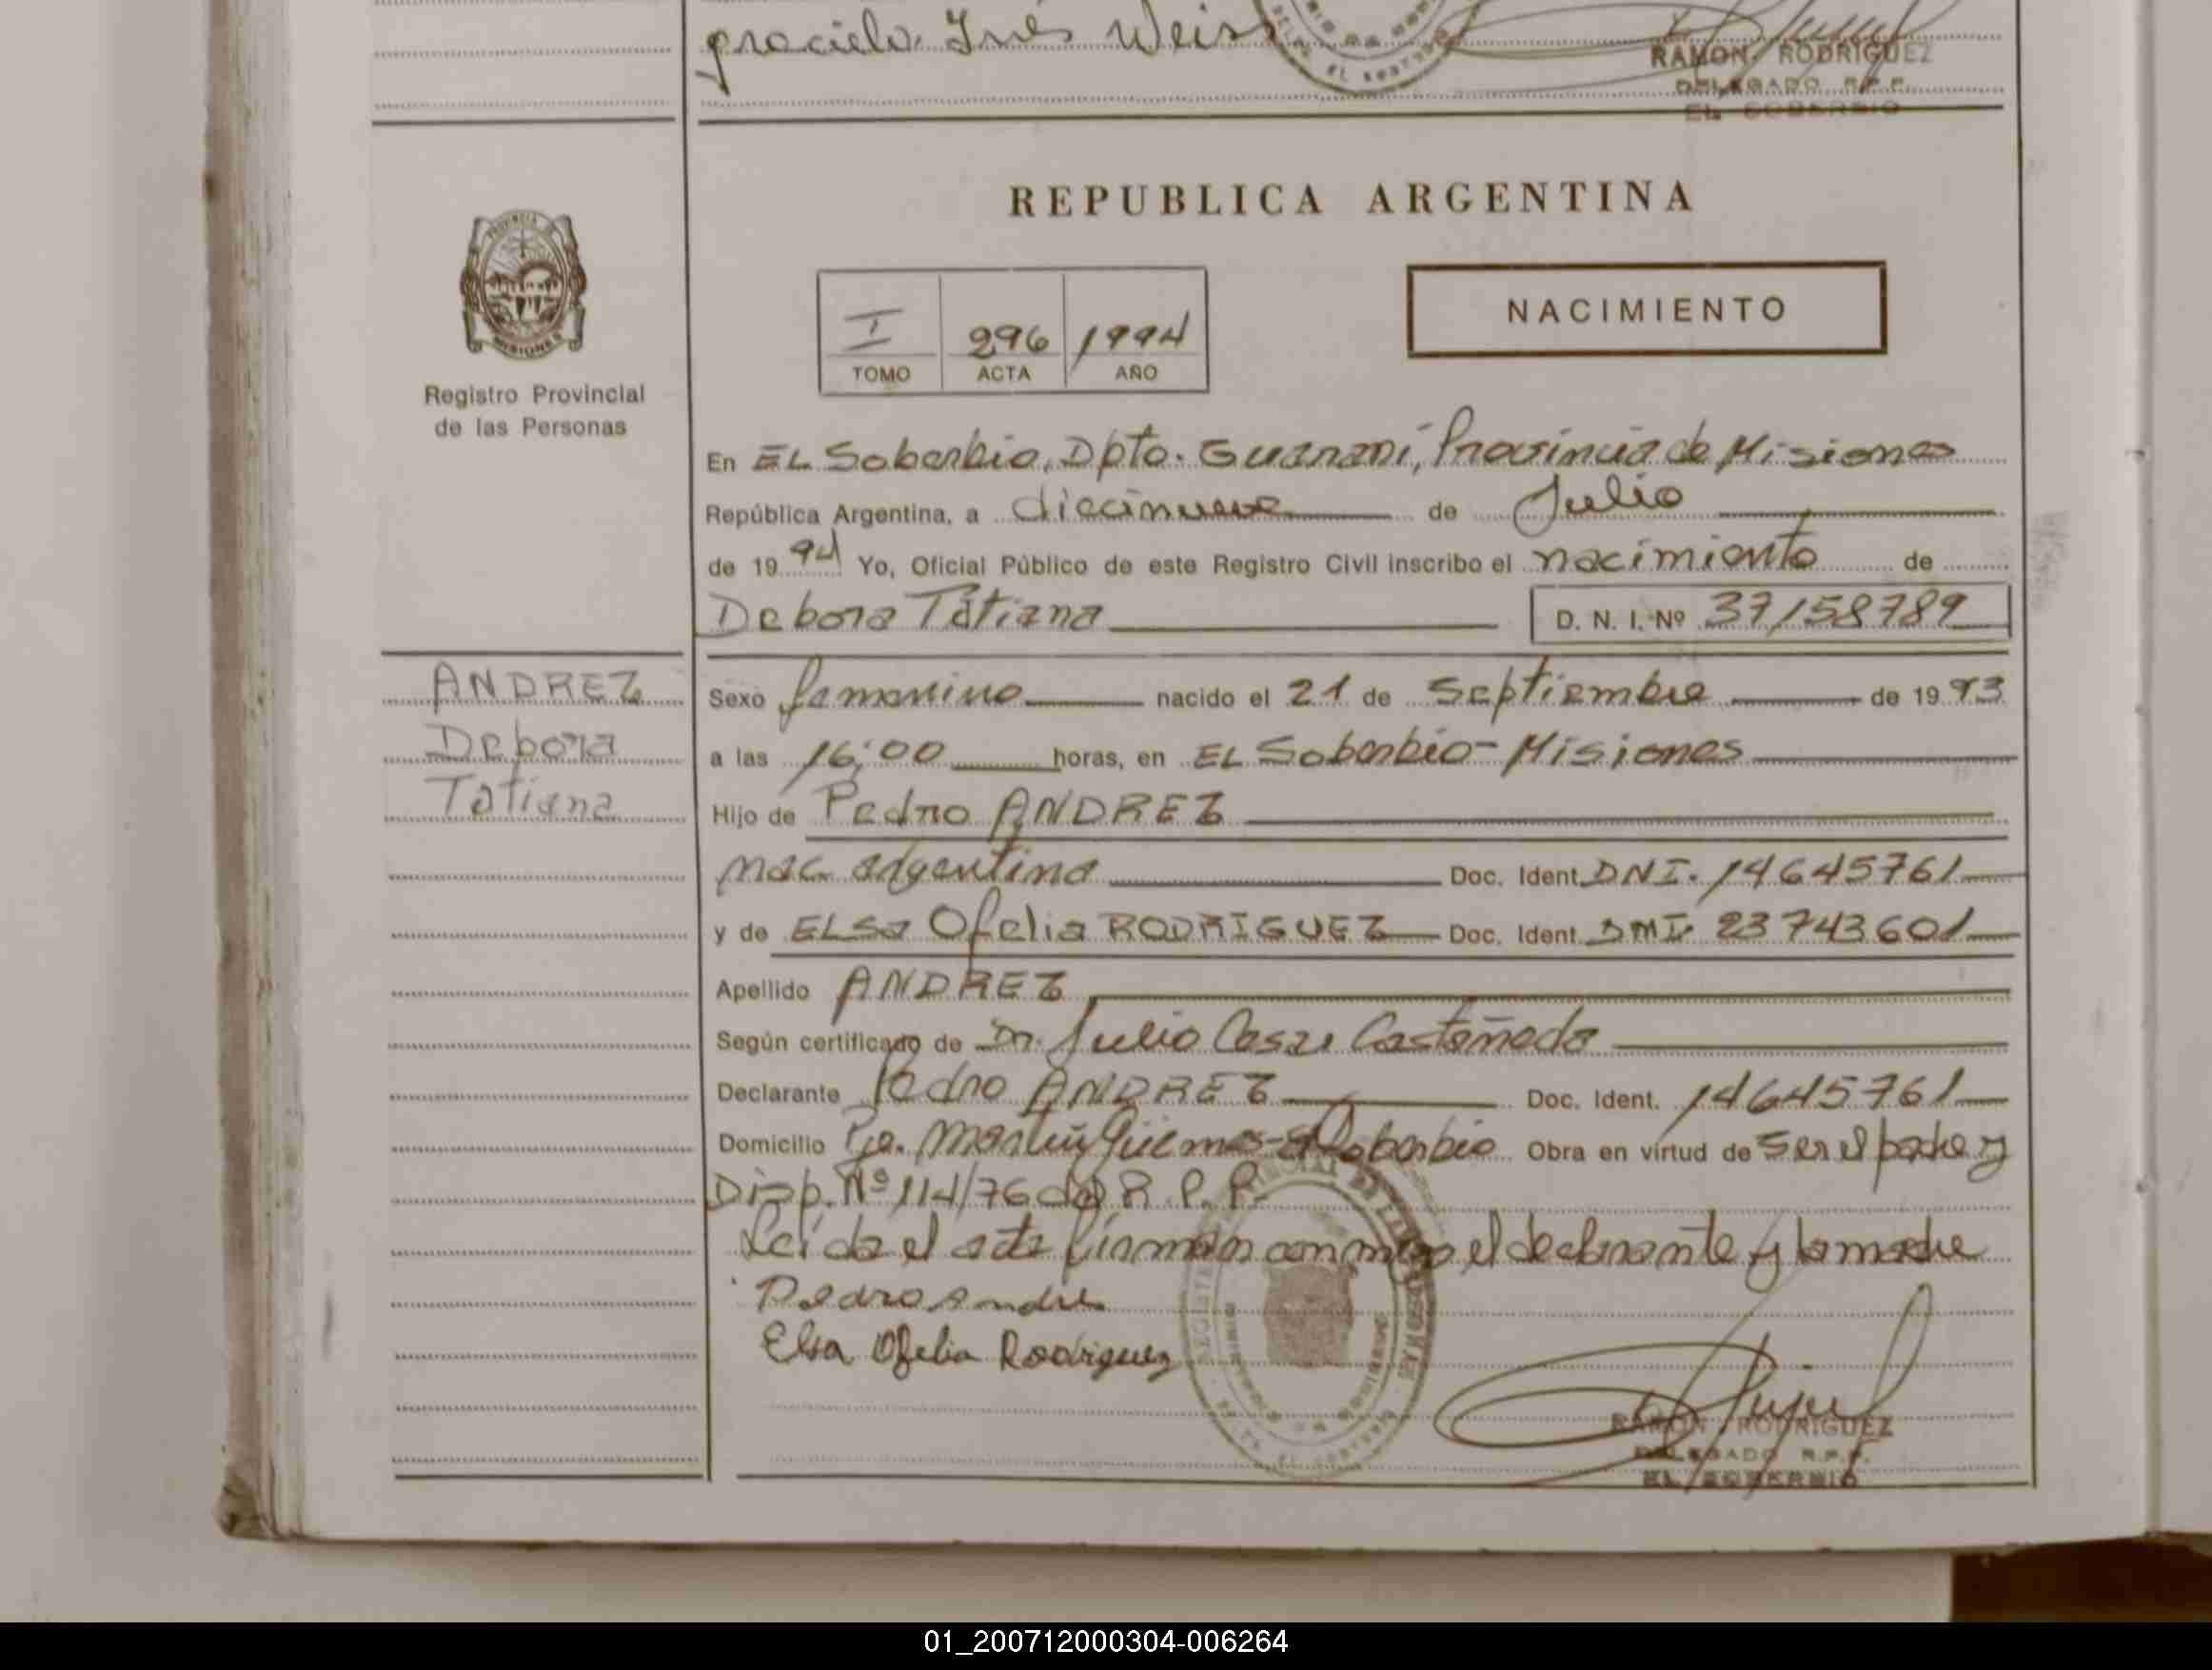 graciela Inés Weiss
RAMON RODRIGUEZ
DELEGADO R.P.P.
EL SOBERBIO
REPUBLICA ARGENTINA
PROVINCIA DE
MISIONES
Registro Provincial
de las Personas
I 296 1994
TOMO ACTA AÑO
NACIMIENTO
En EL Soberbio, Dpto. Guarani, Provincia de Misiones
República Argentina, a diecinueve de Julio
de 1994 Yo, Oficial Público de este Registro Civil inscribo el nacimiento de
Debora Tatiana D. N. I. Nº 37158789
ANDREZ
Debora
Tatiana
Sexo femenino nacido el 21 de Septiembre de 1993
a las 16:00 horas, en EL Soberbio - Misiones
Hijo de Pedro ANDREZ
nac. argentina Doc. Ident. DNI. 14645761
y de ELSa Ofelia RODRIGUEZ Doc. Ident. DNI. 23743601
Apellido ANDREZ
Según certificado de Dr. Julio Cesar Castañeda
Declarante Pedro ANDREZ Doc. Ident. 14645761
Domicilio Pje. Martin Güemes - El Soberbio Obra en virtud de Ser el padre y
Disp. Nº 114/76 del R. P. P.
Leida el acta firman conmigo el declarante y la madre
Pedro Andres
Elsa Ofelia Rodriguez
RAMON RODRIGUEZ
DELEGADO R.P.P.
EL SOBERBIO
01_200712000304-006264